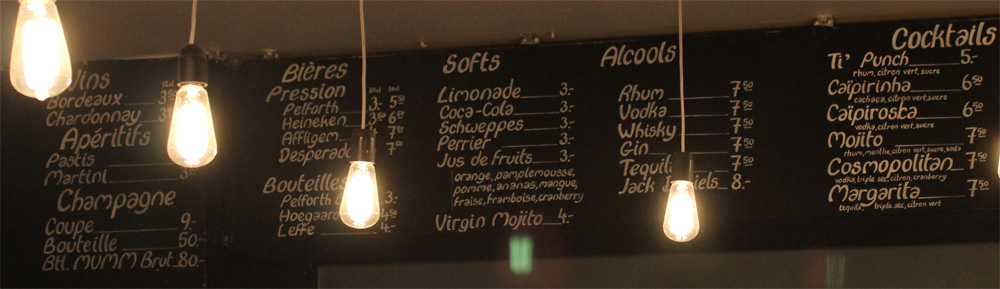 Vins
Bordeaux
Chardonnay
Apéritifs
Pastis
Martini
Champagne
Coupe 9.-
Bouteille 50.-
Btl. MUMM Brut 80.-
Bières
Pression
Pelforth 3.- 5 50
Heineken
Affligem
Desperado
Bouteilles
Pelforth
Hoegaarden
Leffe 4.-
Softs
Limonade 3.-
Coca-Cola 3.-
Schweppes 3.-
Perrier 3.-
Jus de fruits 3.-
orange, pamplemousse,
pomme, ananas, mangue,
fraise, framboise, cranberry
Virgin Mojito 4.-
Alcools
Rhum 7 50
Vodka 7 50
Whisky 7 50
Gin 7 50
Tequila 7 50
Jack Daniels 8.-
Cocktails
Ti' Punch 5.-
rhum, citron vert, sucre
Caïpirinha 6 50
cachaça, citron vert, sucre
Caïpiroska 6 50
vodka, citron vert, sucre
Mojito 7 50
rhum, menthe, citron vert, sucre, soda
Cosmopolitan 7 50
vodka, triple sec, citron, cranberry
Margarita 7 50
tequila, triple sec, citron vert